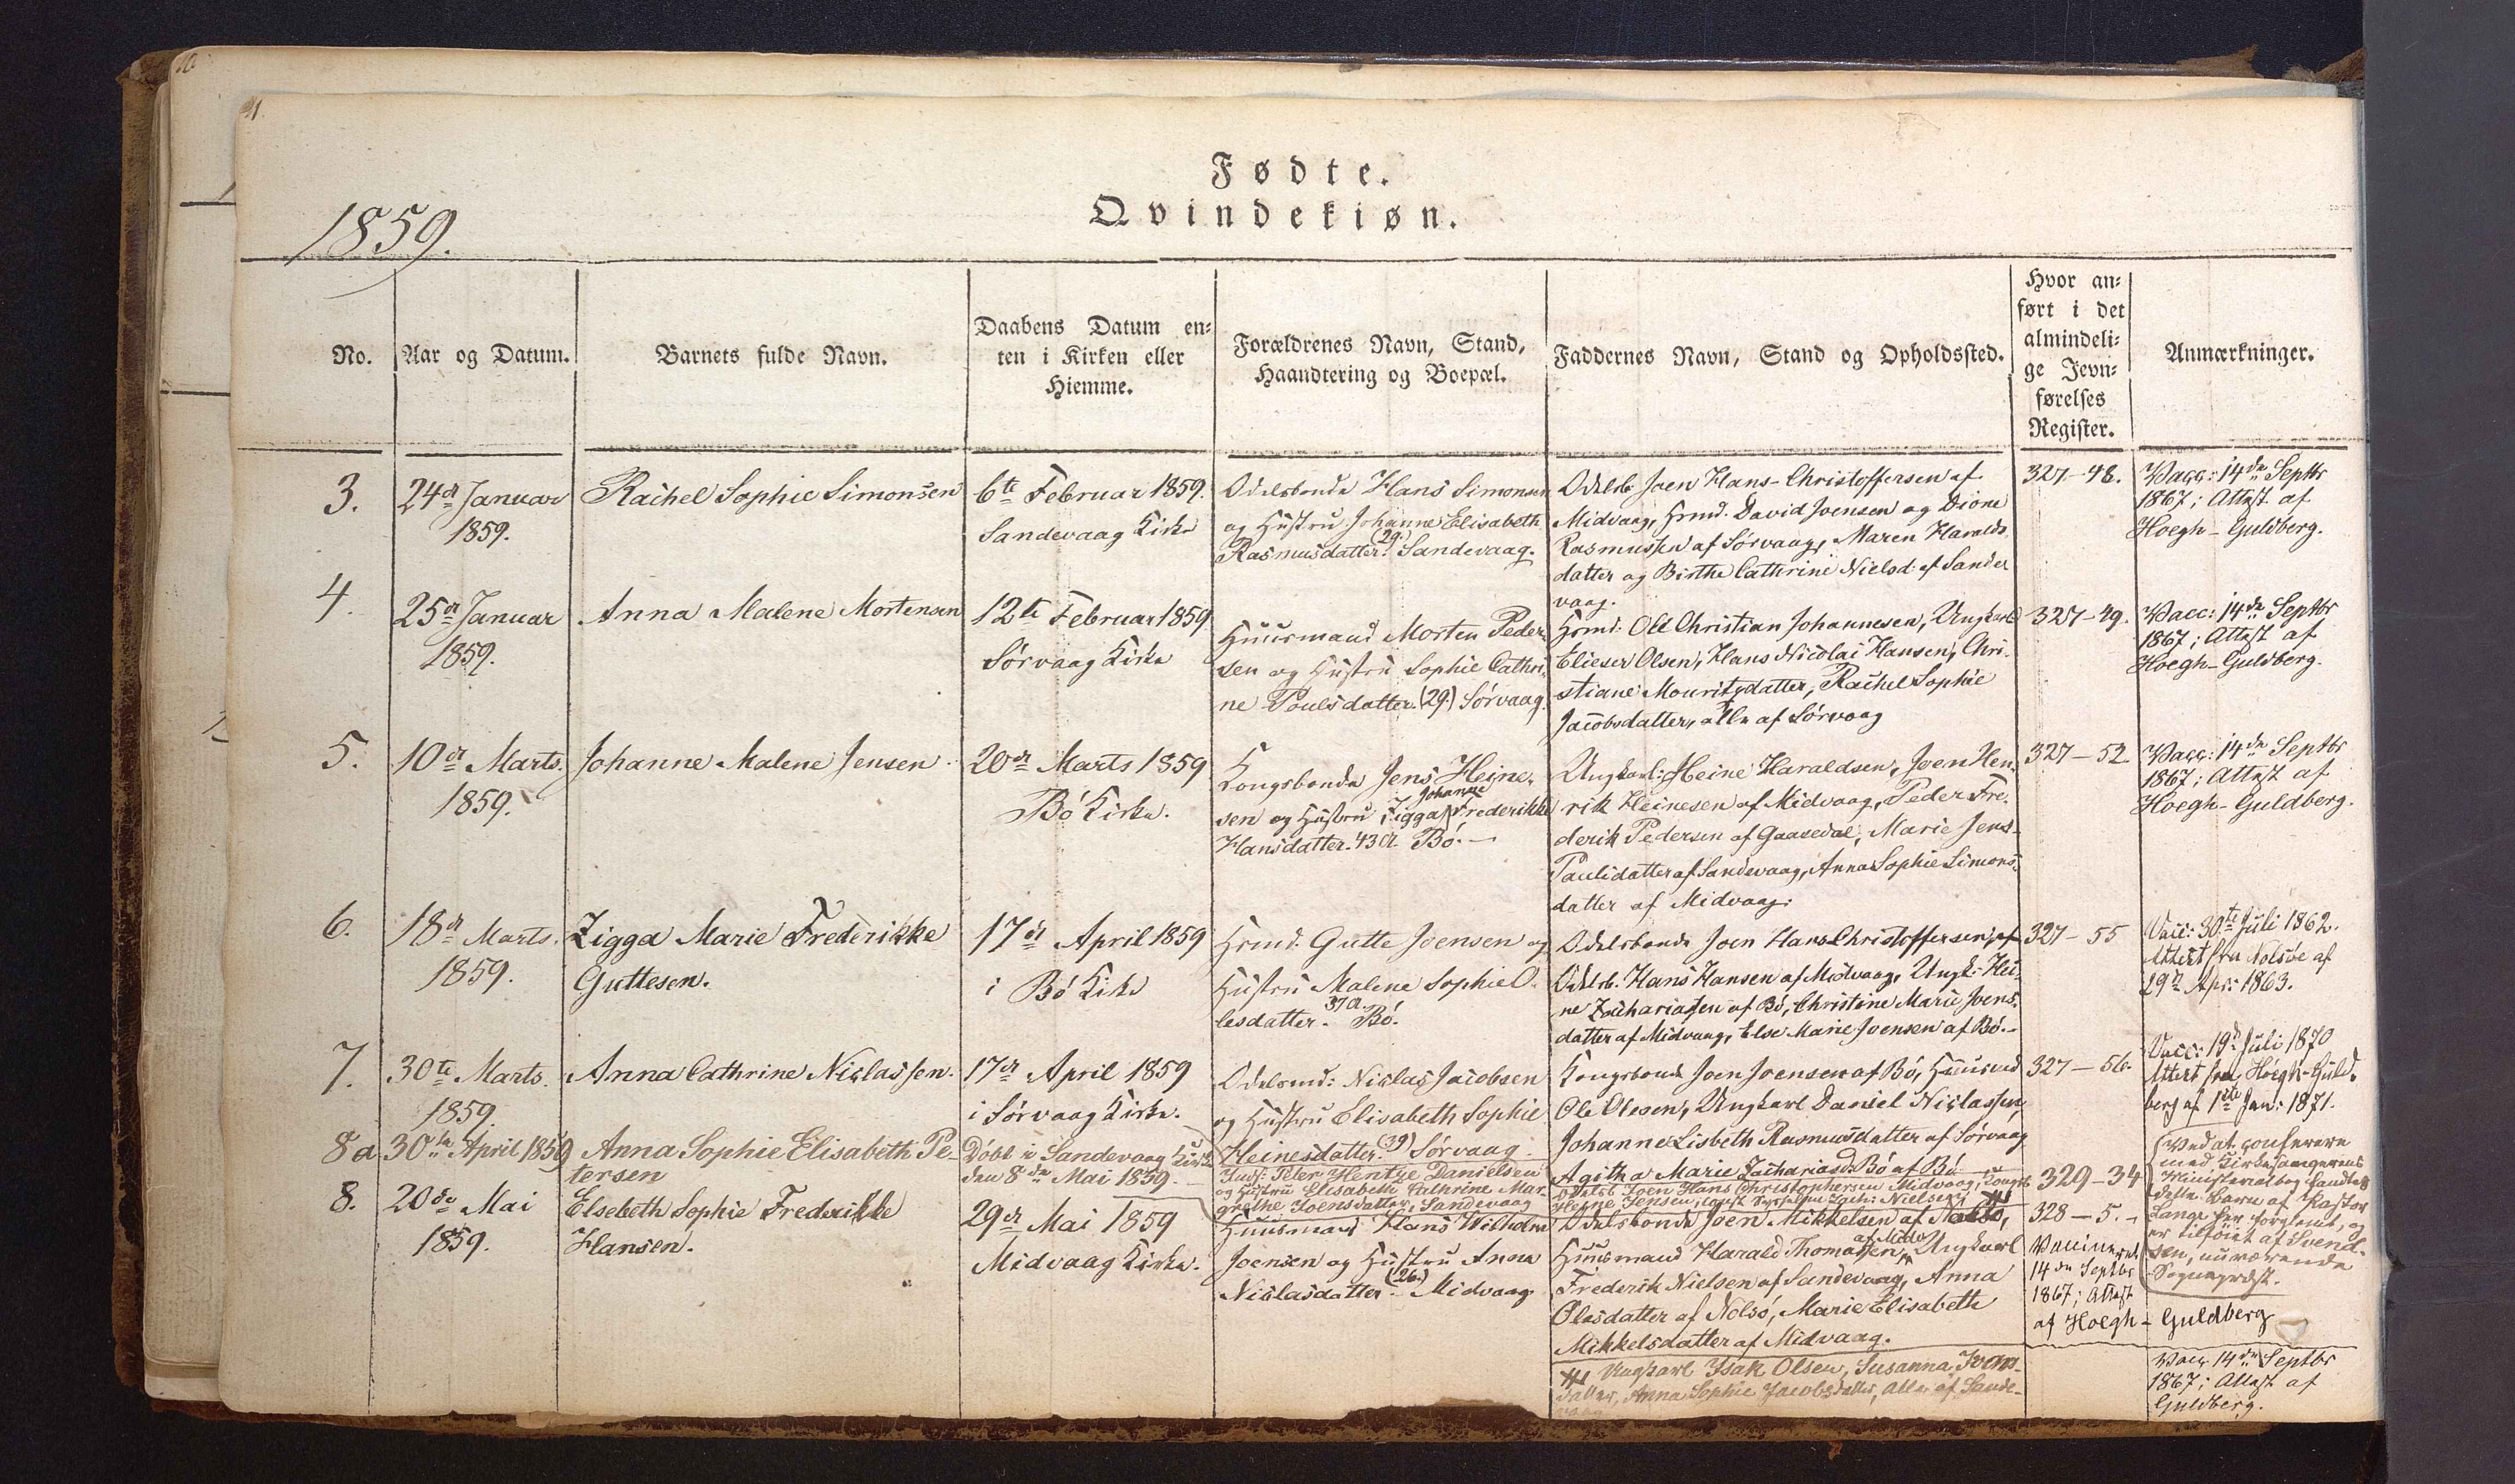 Fødte.
Qvindekiøn.
1859.
No.
Aar og Datum.
Barnets fulde Navn.
Daabens Datum en-
ten i Kirken eller
Hiemme.
Forældrenes Navn, Stand,
Haandtering og Boepæl.
Faddernes Navn, Stand og Opholdssted.
Hvor an-
ført i det
almindeli-
ge Jevn-
førelses
Register.
Anmærkninger.
3.
24de Januar
1859.
Rachel Sophie Simonsen
6te Februar 1859.
Sandevaag Kirke
Odelsbonde Hans Simonsen
og Hustru Johanne Elisabeth
Rasmusdatter (29.) Sandevaag.
Odelsb. Joen Hans-Christoffersen af
Midvaag, Hsmd. David Joensen og Dione
Rasmussen af Sörvaag, Maren Haralds
datter og Birthe Cathrine Nielsd. af Sande
vaag.
327-48.
Vacc: 14de Septbr
1867; Attest af
Hoegh-Guldberg.
4.
25de Januar
1859.
Anna Malene Mortensen
12te Februar 1859
Sörvaag Kirke
Huusmand Morten Peder-
sen og Hustru Sophie Cathri-
ne Poulsdatter. (29.) Sörvaag.
Hsmd: Ole Christian Johannesen, Ungkarl
Elieser Olsen, Hans Nicolai Hansen, Chri-
stiane Mouritzdatter, Rachel Sophie
Jacobsdatter, alle af Sörvaag
327-49.
Vacc: 14de Septbr
1867; Attest af
Hoegh-Guldberg.
5.
10de Marts.
1859.
Johanne Malene Jensen
20de Marts 1859
Bö Kirke.
Kongsbonde Jens Heine-
sen og Hustru Zigga Johanne Frederikke
Hansdatter. 43 A. Bö. -
Ungkarl: Heine Haraldsen, Joen Hen-
rik Heinesen af Midvaag, Peder Fre-
derik Pedersen af Gaasedal, Marie Jens-
Paulidatter af Sandevaag, Anna Sophie Simons-
datter af Midvaag.
327-52.
Vacc: 14de Septbr
1867; Attest af
Hoegh-Guldberg.
6.
18de Marts.
1859.
Zigga Marie Frederikke
Guttesen.
17de April 1859
i Bö Kirke
Hsmd: Gutte Joensen og
Hustru Malene Sophie O-
lesdatter. 37 A. Bö.
Odelsbonde Joen Hans Christoffersen, af
Odelsb. Hans Hansen af Midvaag, Ungk: Hei-
ne Zachariasen af Bö, Christine Marie Joens-
datter af Midvaag, Else Marie Joensen af Bö. -
327-55
Vacc: 30te Juli 1862.
Attest fra Nolsöe af
29de Apr: 1863.
7.
30te Marts.
1859.
Anna Cathrine Niclassen.
17de April 1859
i Sörvaag Kirke.
Odelsmd: Niclas Jacobsen
og Hustru Elisabeth Sophie
Heinesdatter. (39) Sörvaag.
Kongsbonde Joen Joensen af Bö, Huusmd
Ole Olesen, Ungkarl Daniel Niclassen,
Johanne Lisbeth Rasmusdatter af Sörvaag
Agitha Marie Zachariasd. Bö af Bö
327-56.
Vacc: 19de Juli 1870
Attest fra Höegh-Guld-
berg af 1ste Jan: 1871.
8a
30te April 1859
Anna Sophie Elisabeth Pe-
tersen
Döbt i Sandevaag Kirke
den 8de Mai 1859. -
Peter Hentze Danielsen
og Hustru Elisabeth Cathrine Mar-
grethe Joensdatter, Sandevaag
Odelsb. Joen Hans Christophersen Midvaag, Kongsb
Heine Jensen, Zach: Nielsen,
329-34
Ved at conferere
med Kirkesangerens
Ministerialbog fandtes
dette Barn af Pastor
Lange her forglemt, og
er tilföiet af Svend-
sen, nuværende
Sognepræst.
8.
20de Mai
1859.
Elsebeth Sophie Frederikke
Hansen.
29de Mai 1859
Midvaag Kirke.
Huusmand Hans Wilhelm
Joensen og Hustru Anna
Niclasdatter (26.) Midvaag
Odelsbonde Joen Mikkelsen af Nolsö,
Huusmand Harald Thomassen, af Midv. Ungkarl
Frederik Nielsen af Sandevaag, Anna
Olesdatter af Nolsö, Marie Elisabeth
Mikkelsdatter af Midvaag.
328-5. -
Vaccineret
14de Septbr
1867; Attest
af Hoegh-Guldberg
Ungkarl Isak Olsen, Susanna Joens-
datter, Anna Sophie Jacobsdatter, alle af Sande-
vaag
Vacc 14de Septbr
1867; Attest af
Guldberg.